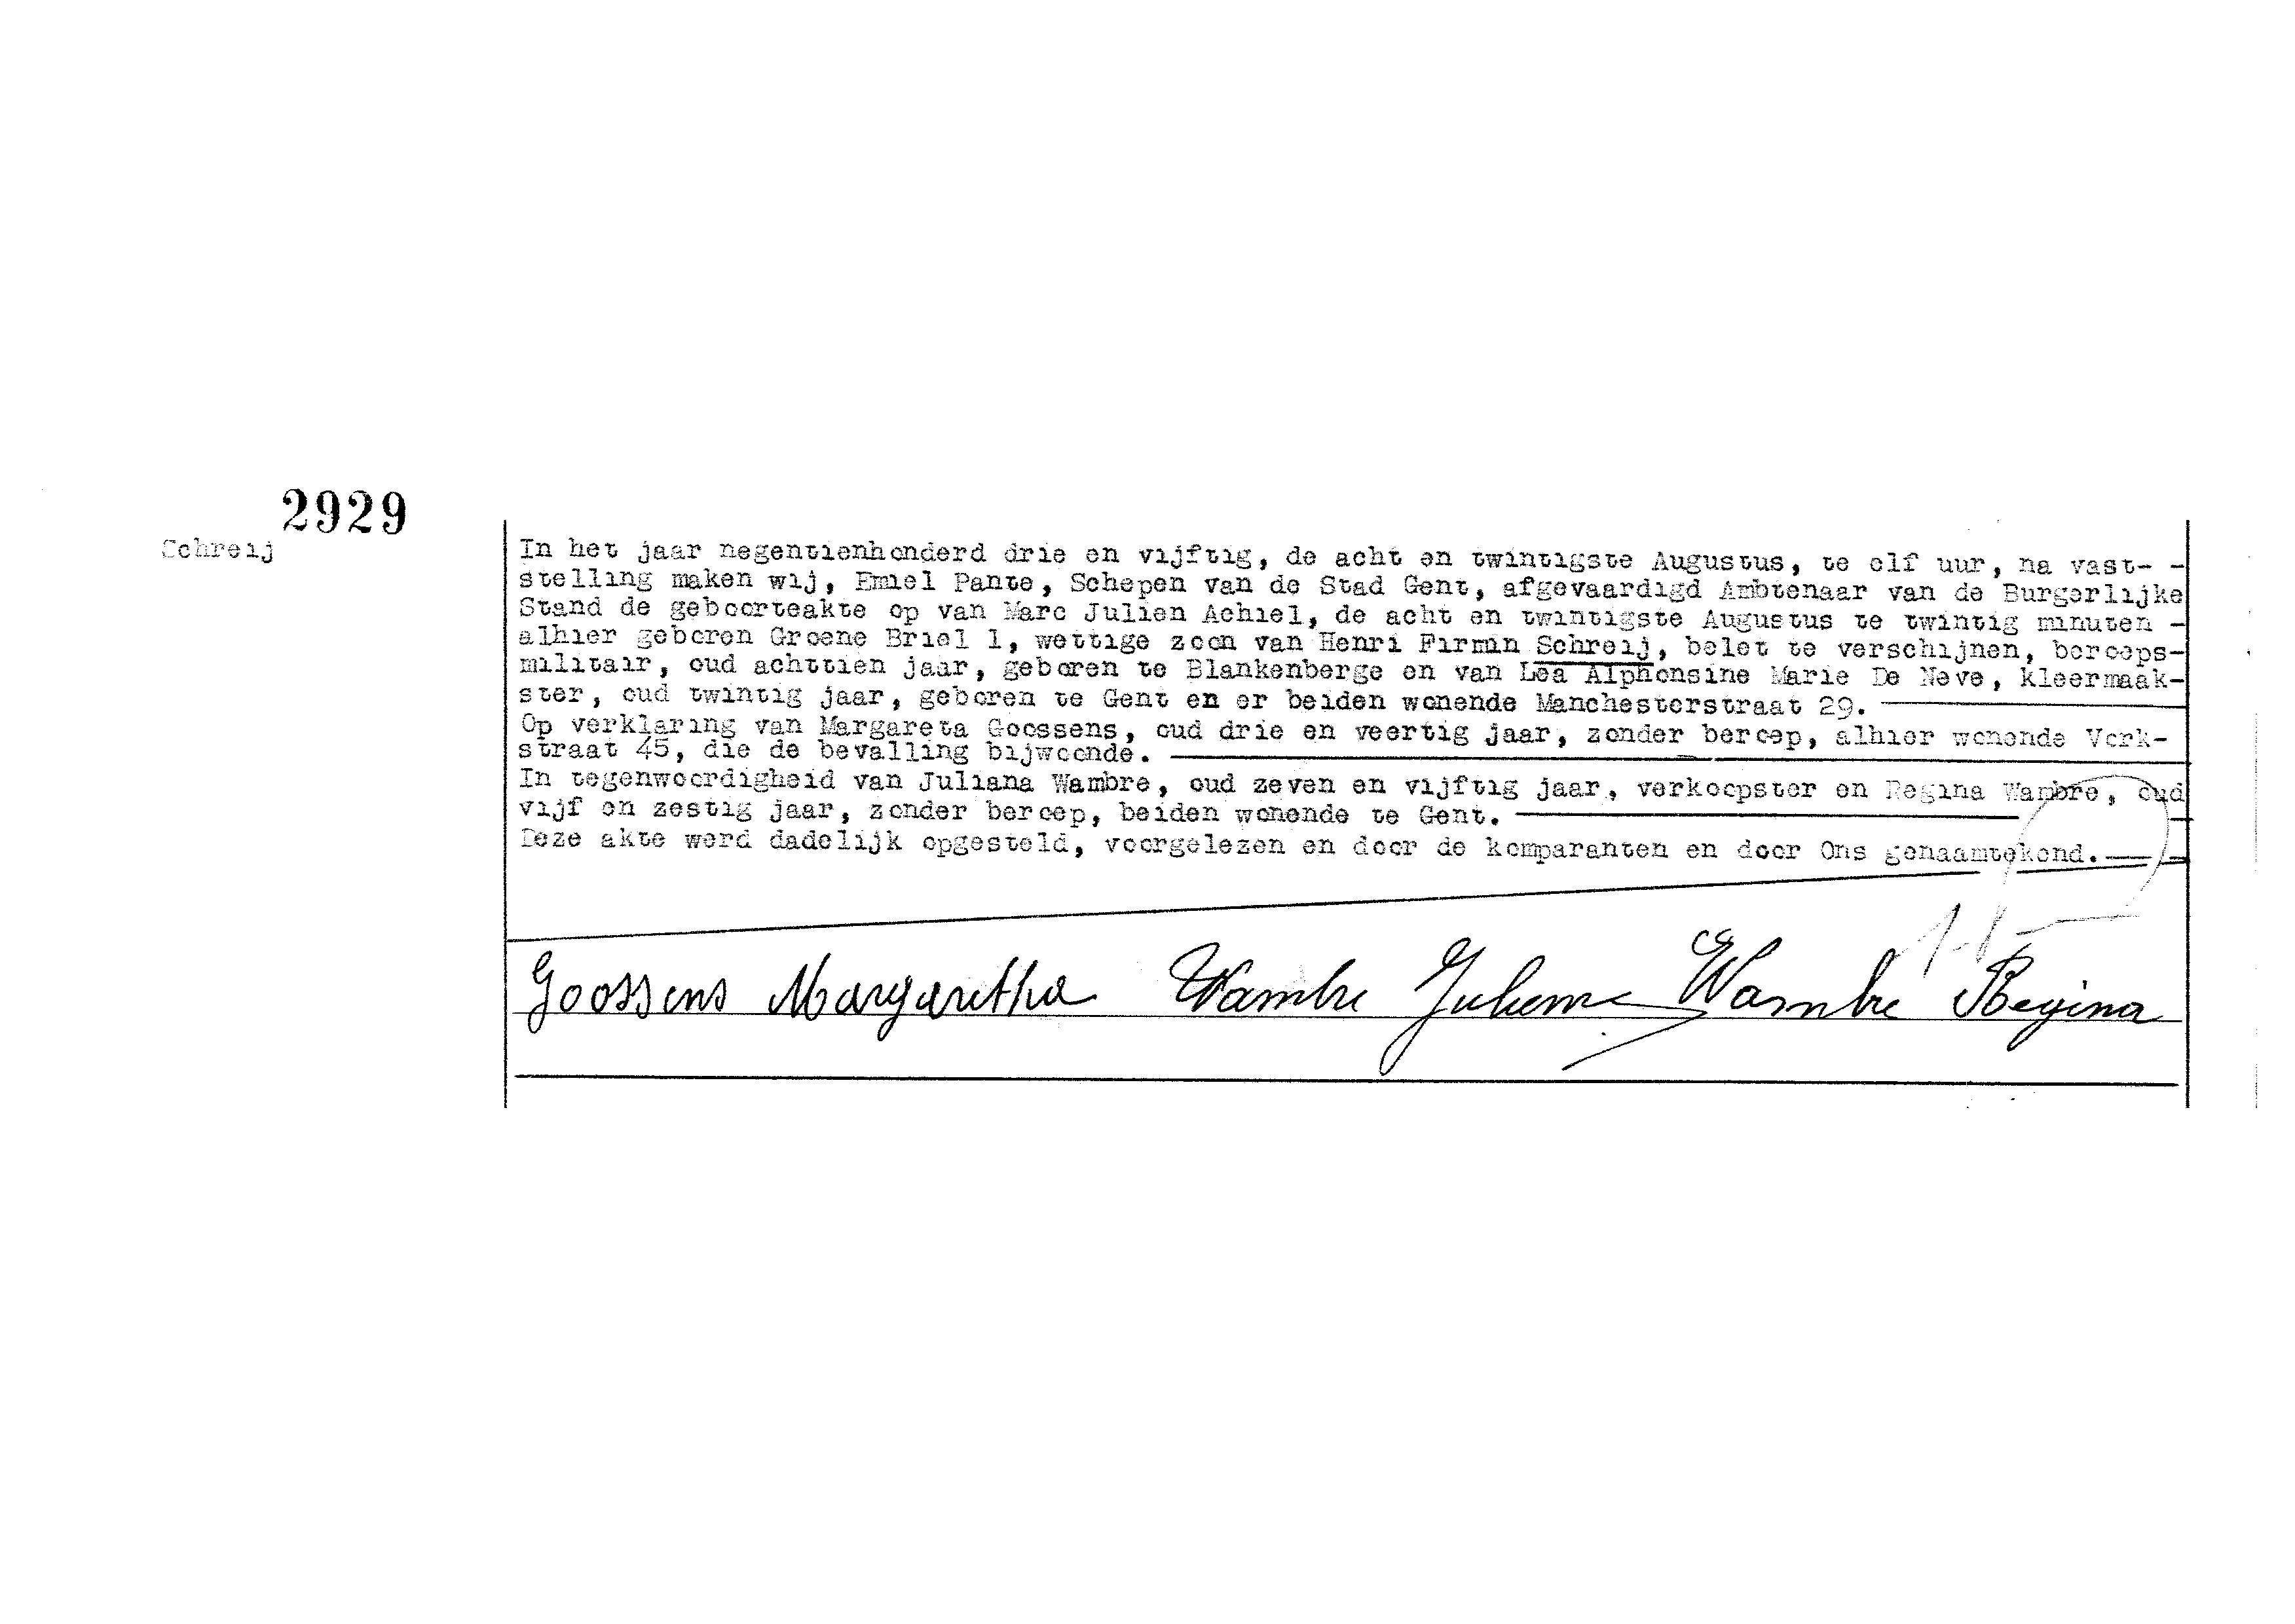 2929
Schreij
In het jaar negentienhonderd drie en vijftig, de acht en twintigste Augustus, te elf uur, na vast- -
stelling maken wij, Emiel Pante, Schepen van de Stad Gent, afgevaardigd Ambtenaar van de Burgerlijke
Stand de geboorteakte op van Marc Julien Achiel, de acht en twintigste Augustus te twintig minuten -
alhier geboren Groene Briel 1, wettige zoon van Henri Firmin Schreij, belet te verschijnen, beroeps-
militair, oud achttien jaar, geboren te Blankenberge en van Lea Alphonsine Marie De Neve, kleermaak-
ster, oud twintig jaar, geboren te Gent en er beiden wonende Manchesterstraat 29.
Op verklaring van Margareta Goossens, oud drie en veertig jaar, zonder beroep, alhier wonende Verk-
straat 45, die de bevalling bijwoonde.
In tegenwoordigheid van Juliana Wambre, oud zeven en vijftig jaar, verkoopster en Regina Wambre, oud
vijf en zestig jaar, zonder beroep, beiden wonende te Gent.
Deze akte werd dadelijk opgesteld, voorgelezen en door de komparanten en door Ons genaamtekend.
Goossens Margaretha Wambre Juliana Wambre Regina